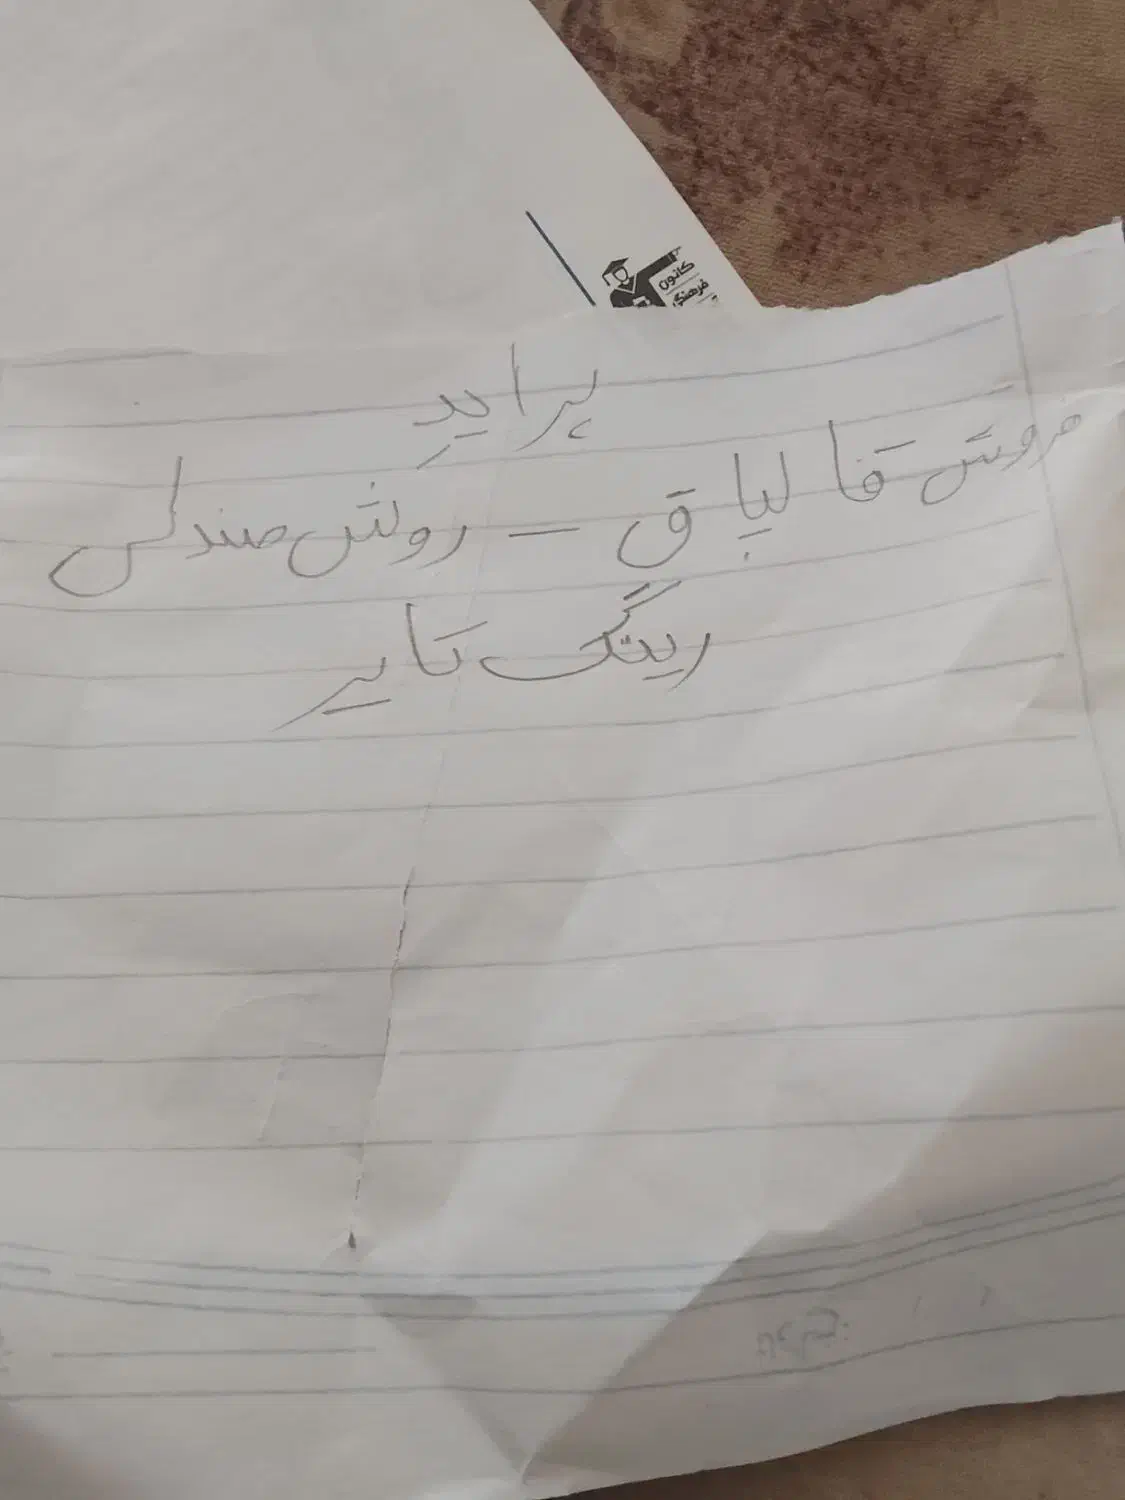 کانون
فرهنگی
پراید
فروش قالپاق - روکش صندلی
رینگ تایر